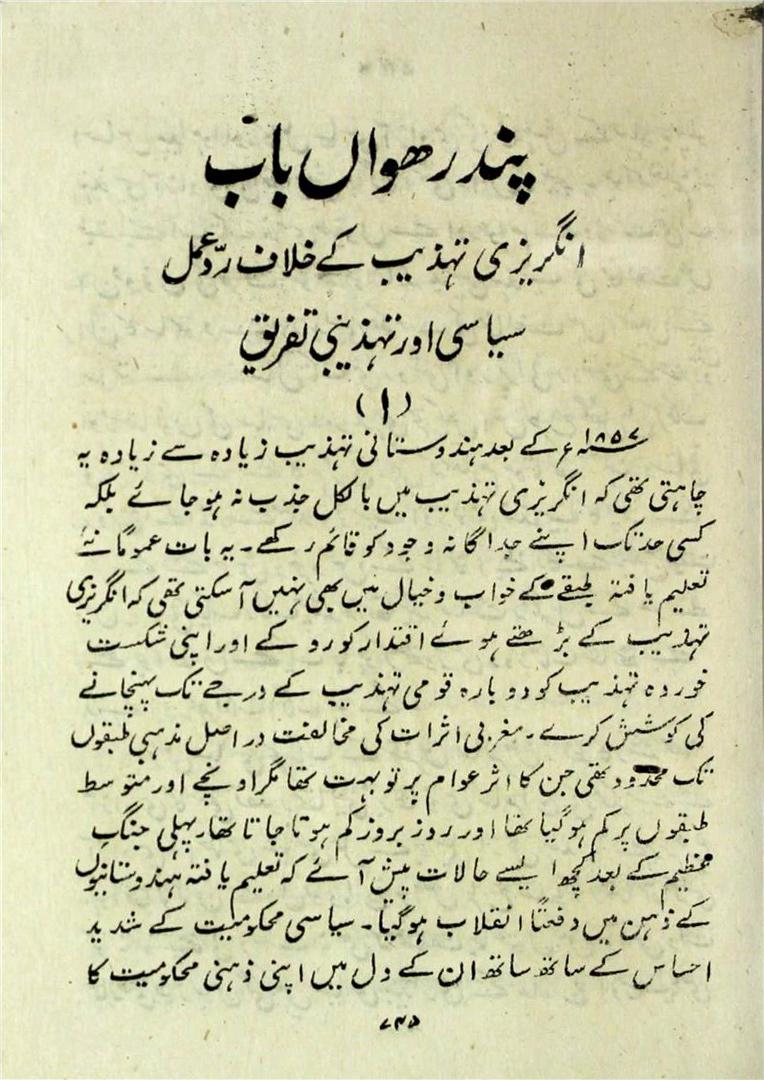 پندرھواں باب
انگریزی تہذیب کے خلاف ردِّ عمل
سیاسی اور تہذیبی تفریق
(۱)
۱۸۵۷ء کے بعد ہندوستانی تہذیب زیادہ سے زیادہ یہ
چاہتی تھی کہ انگریزی تہذیب میں بالکل جذب نہ ہو جائے بلکہ
کسی حد تک اپنے جداگانہ وجود کو قائم رکھے۔ یہ بات عموماً نئے
تعلیم یافتہ طبقے کے خواب و خیال میں بھی نہیں آ سکتی تھی کہ انگریزی
تہذیب کے بڑھتے ہوئے اقتدار کو روکے اور اپنی شکست
خوردہ تہذیب کو دوبارہ قومی تہذیب کے درجے تک پہنچانے
کی کوشش کرے۔ مغربی اثرات کی مخالفت در اصل مذہبی طبقوں
تک محدود تھی جن کا اثر عوام پر تو بہت تھا مگر اونچے اور متوسط
طبقوں پر کم ہو گیا تھا اور روز بروز کم ہوتا جاتا تھا۔ پہلی جنگِ
عظیم کے بعد کچھ ایسے حالات پیش آئے کہ تعلیم یافتہ ہندوستانیوں
کے ذہن میں دفعتاً انقلاب ہو گیا۔ سیاسی محکومیت کے شدید
احساس کے ساتھ ساتھ ان کے دل میں اپنی ذہنی محکومیت کا
۷۴۵